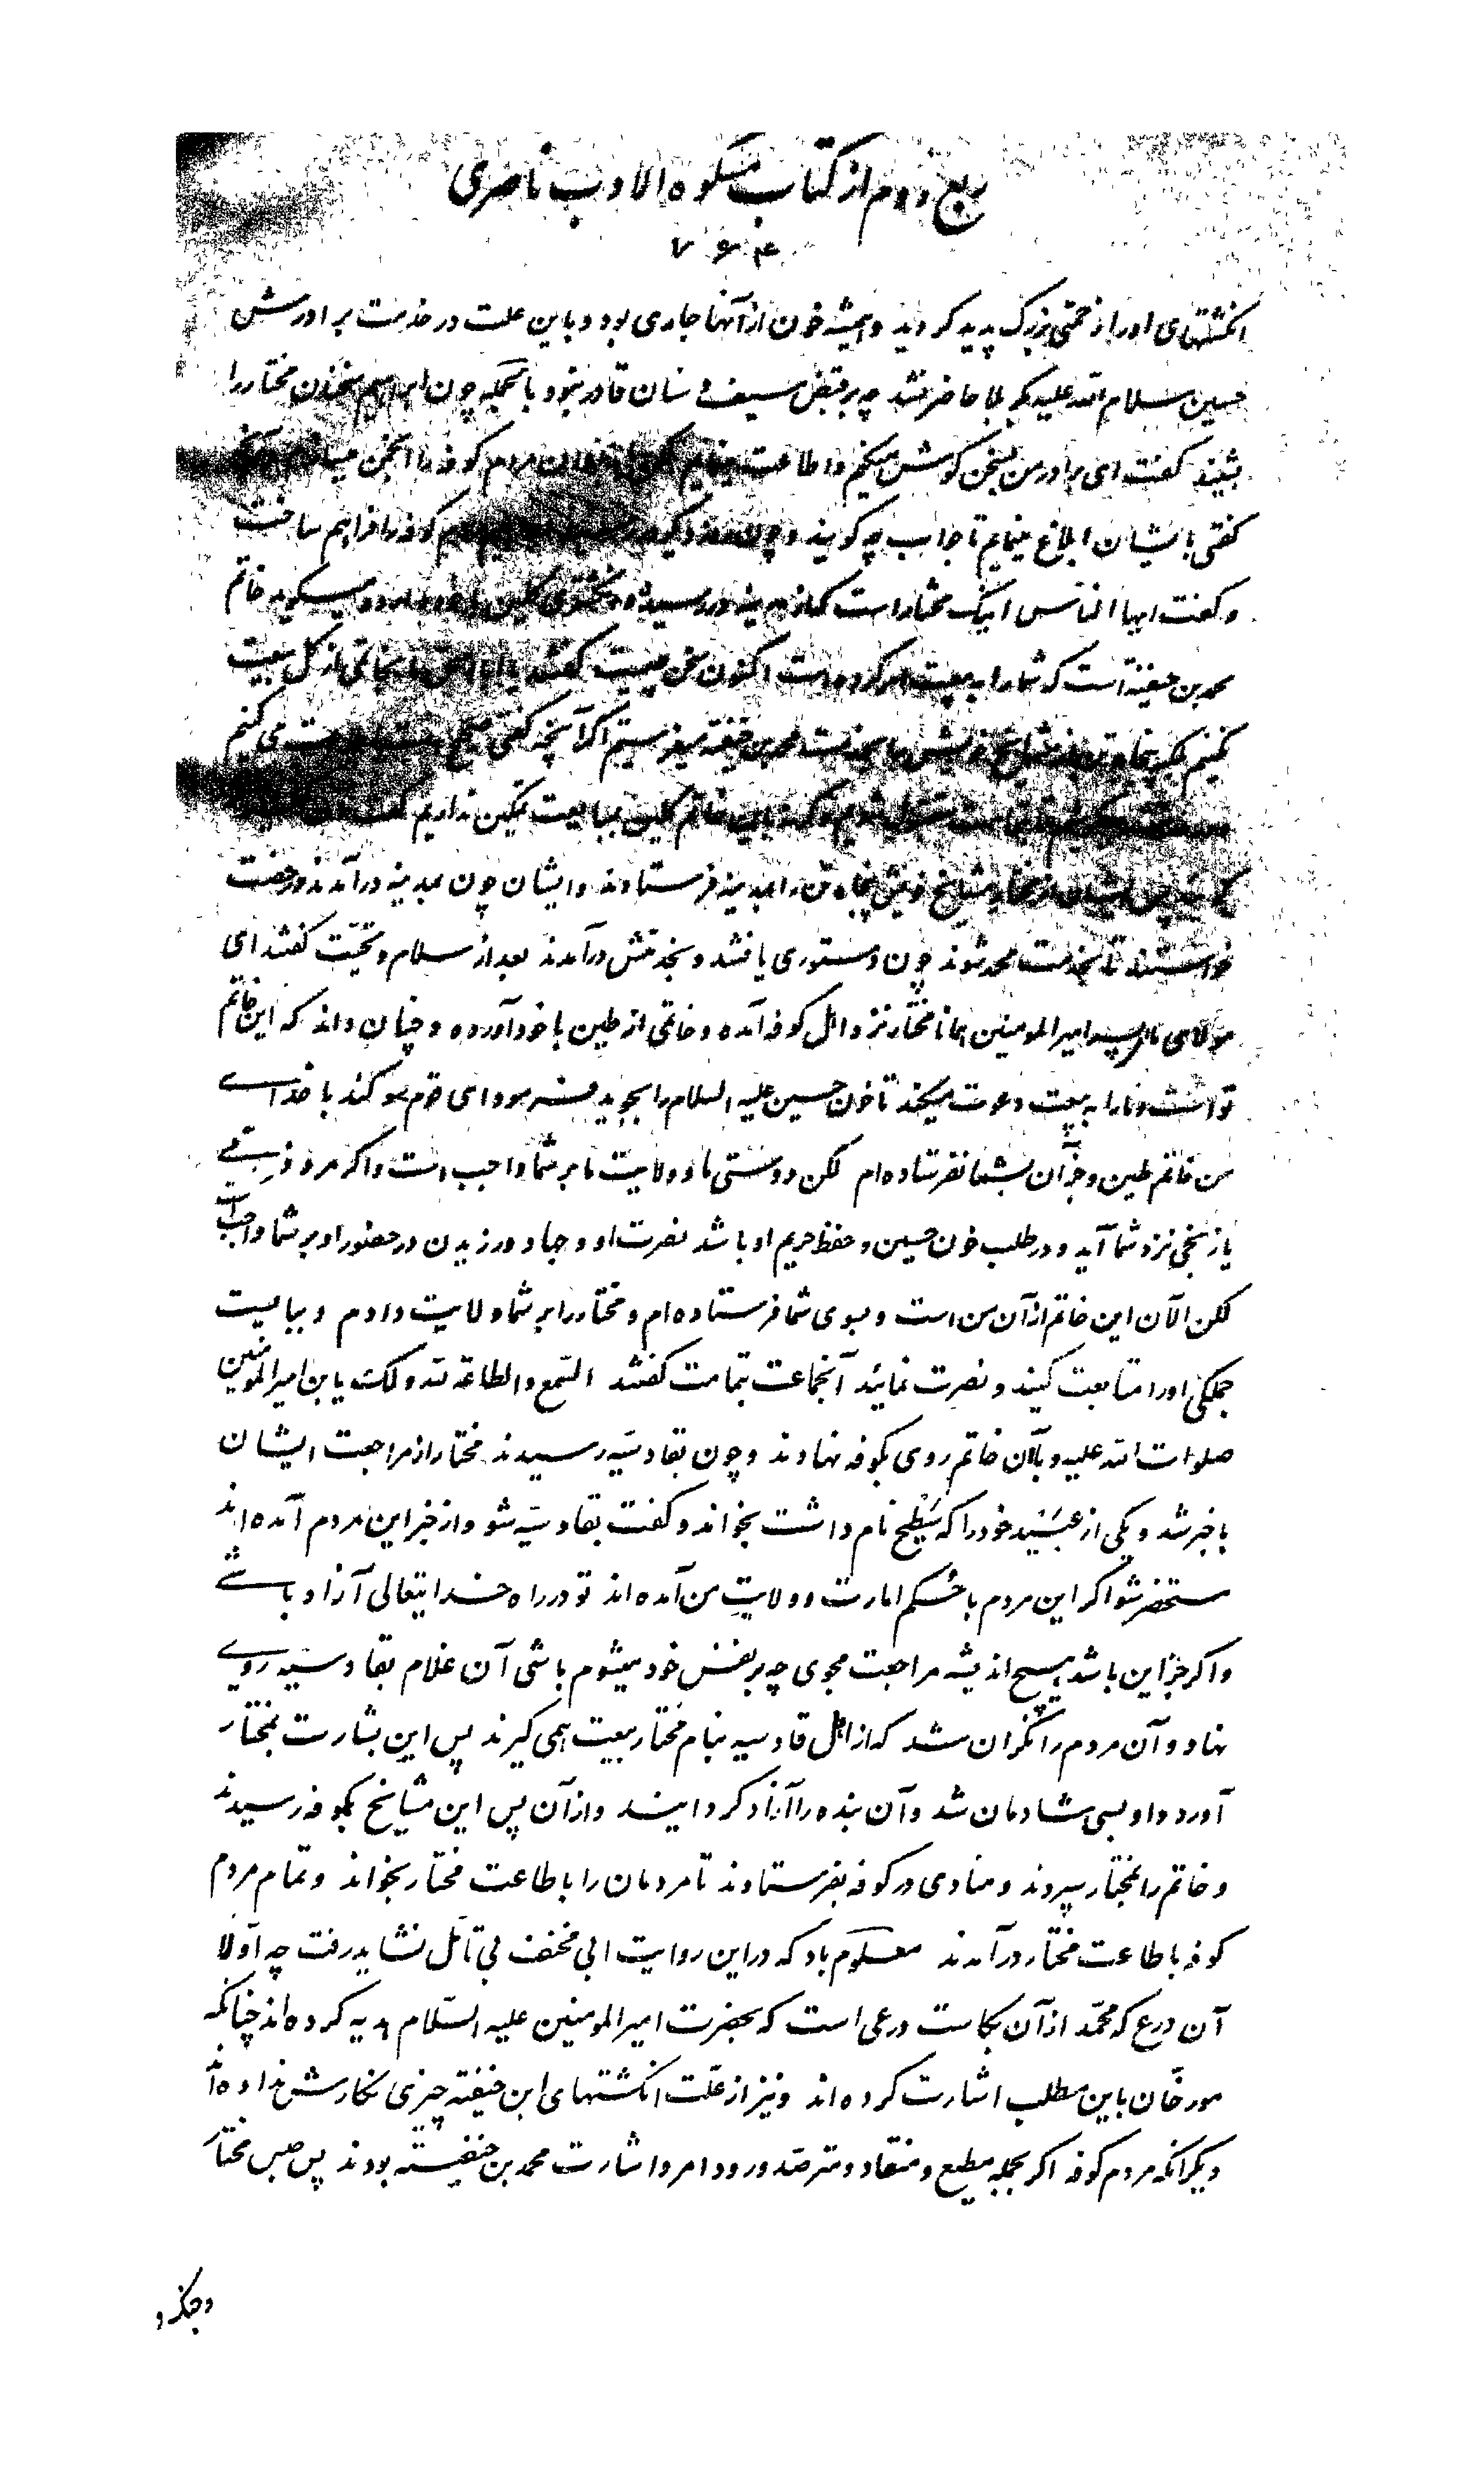 ربع دوم از کتاب مشکوة الادب ناصری
۷۶۴
انگشتهای او را زخمی بزرگ پدید گردید و همیشه خون از آنها جاری بود و باین علت در خدمت برادرش
حسین سلام الله علیه بکربلا حاضر نشد چه بر قبض سیف و سنان قادر نبود بالجمله چون ابراهیم سخنان مختار را
بشنید گفت ای برادر من بسخن گوش میکنم و اطاعت مینمایم لکن مردم کوفه را انجمن
گفتی بایشان ابلاغ مینمایم تا جواب چه گویند و چون روز دیگر کوفه را فراهم ساخت
و گفت ایها الناس اینک مختار است که از مدینه در رسیده و انگشتری گلین با خود دارد و میگوید خاتم
محمد بن حنفیة است که شما را به بیعت امر کرده است اکنون سخن چیست گفتند یا ابا اسحق ما بخاتمی از گل بیعت
نکنیم لکن پنجاه تن از مشایخ خویش را بخدمت محمد بن حنفیه میفرستیم اگر آنچه گفتی صحیح است می کنیم
و گرنه باین خاتم گلین بمبایعت تمکین نداریم گفت
پس ایشان از مشایخ خویش پنجاه تن را بمدینه فرستادند و ایشان چون بمدینه در آمدند و رخصت
خواستند تا بخدمت محمد شوند چون دستوری یافتند و بخدمتش درآمدند بعد از سلام و تحیت گفتند ای
مولای ما و پسر امیر المومنین همانا مختار نزد اهل کوفه آمده و خاتمی از طین با خود آورده و چنان داند که این خاتم
تو است و ما را به بیعت دعوت میکند تا خون حسین علیه السلام را بجوید فرمود ای قوم سوگند با خدای
من خاتم طین و جز آن بشما نفرستاده‌ام لکن دوستی ما و ولایت ما بر شما واجب است و اگر مرد ذمی
یا زنجی نزد شما آید و در طلب خون حسین و حفظ حریم او باشد نصرت او و جهاد ورزیدن در حضور او بر شما واجب است
لکن الآن این خاتم از آن من است و بسوی شما فرستاده‌ام و مختار را بر شما ولایت دادم و ببایست
جملگی او را متابعت کنید و نصرت نمائید آنجماعت بتمامت گفتند السّمع و الطاعة لله و لک یا بن امیر المومنین
صلوات الله علیه و بآن خاتم روی بکوفه نهادند و چون بقادسیّه رسیدند مختار از مراجعت ایشان
باخبر شد و یکی از عبید خود را که سَطیح نام داشت بخواند و گفت بقادسیّه شو و از خبر این مردم آمده‌اند
مستحضر شو اگر این مردم با حکم امارت و ولایت من آمده اند تو در راه خدایتعالی آزاد باشی
و اگر جز این باشد هیچ اندیشه مراجعت مجوی چه بر نفس خود میشوم باشی آن غلام بقادسیه روی
نهاد و آن مردم را نگران شد که از اهل قادسیه بنام مختار بیعت همی گیرند پس این بشارت بمختار
آورد و او بسی شادمان شد و آن بنده را آزاد گردانید و از آن پس این مشایخ بکوفه رسیدند
و خاتم را بمختار سپردند و منادی در کوفه بفرستادند تا مردمان را باطاعت مختار بخواند و تمام مردم
کوفه باطاعت مختار درآمدند معلوم باد که در این روایت ابی مخنف بی تامّل نشاید رفت چه اوّلا
آن درع که محمّد از آن بکاست درعی است که بحضرت امیر المومنین علیه السّلام هدیه کرده‌اند چنانکه
مورخّان باین مطلب اشارت کرده اند و نیز از علّت انگشتهای ابن حنفیّه چیزی نگارش نداده‌اند
دیگر آنکه مردم کوفه اگر بجمله مطیع و منقاد و مترصّد ورود امر و اشارت محمد بن حنفیّه بودند پس حبس مختار
و جنگ و